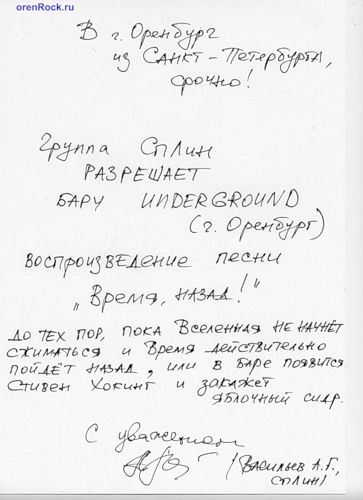 orenRock.ru
В г. Оренбург
из Санкт-Петербурга,
срочно!
Группа Сплин
РАЗРЕШАЕТ
БАРУ UNDERGROUND
(г. Оренбург)
ВОСПРОИЗВЕДЕНИЕ ПЕСНИ
„Время, назад!"
ДО ТЕХ ПОР, ПОКА ВСЕЛЕННАЯ НЕ НАЧНЁТ
СЖИМАТЬСЯ И ВРЕМЯ ДЕЙСТВИТЕЛЬНО
ПОЙДЁТ НАЗАД, ИЛИ В БАРЕ ПОЯВИТСЯ
СТИВЕН ХОКИНГ И ЗАКАЖЕТ
ЯБЛОЧНЫЙ СИДР.
С уважением
(Васильев А.Г.,
СПЛИН)